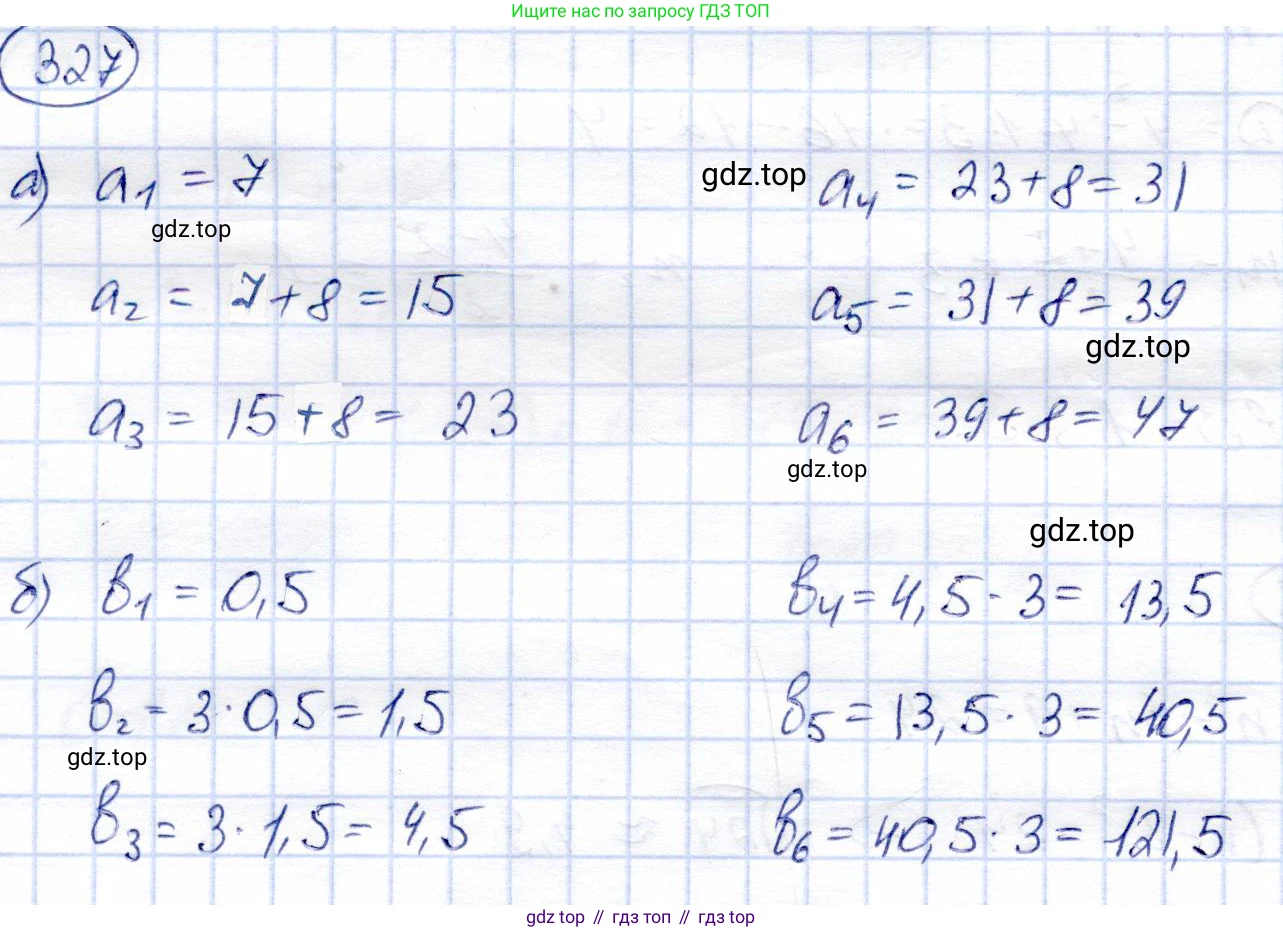 Ищите нас по запросу ГДЗ ТОП
327
а) a₁ = 7
gdz.top
a₂ = 7 + 8 = 15
a₃ = 15 + 8 = 23
gdz.top
a₄ = 23 + 8 = 31
a₅ = 31 + 8 = 39
gdz.top
a₆ = 39 + 8 = 47
gdz.top
б) b₁ = 0,5
b₂ = 3 · 0,5 = 1,5
gdz.top
b₃ = 3 · 1,5 = 4,5
gdz.top
b₄ = 4,5 · 3 = 13,5
b₅ = 13,5 · 3 = 40,5
b₆ = 40,5 · 3 = 121,5
gdz top // гдз топ // гдз top